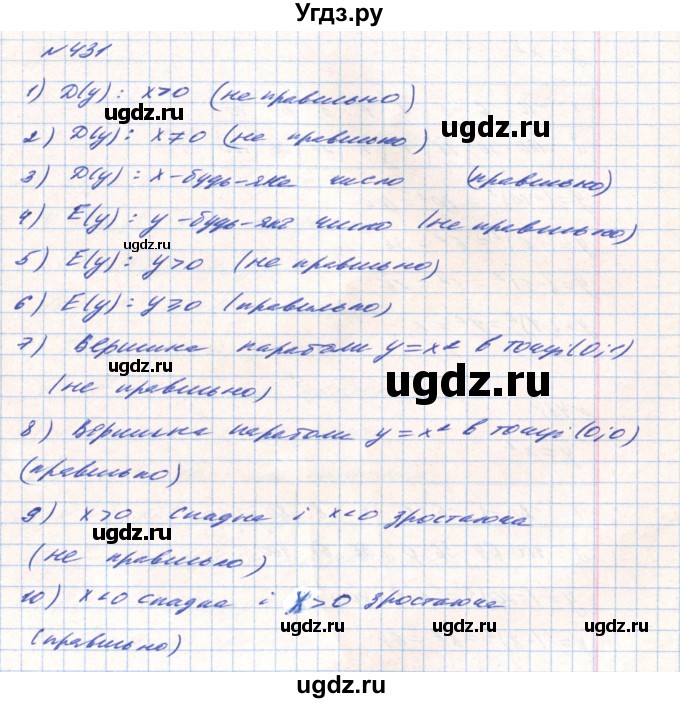 Угдз.ру
№431
1) D(y): x>0 (не правильно)
ugdz.ru
ugdz.ru
2) D(y): x≠0 (не правильно)
3) D(y): x-будь-яке число (правильно)
4) E(y): y-будь-яке число (не правильно)
ugdz.ru
5) E(y): y>0 (не правильно)
6) E(y): y⩾0 (правильно)
7) Вершина параболи y=x² в точці (0;1)
ugdz.ru
(не правильно)
8) Вершина параболи y=x² в точці (0;0)
(правильно)
9) x>0 спадна і x<0 зростаюча
ugdz.ru
(не правильно)
10) x<0 спадна і x>0 зростаюча
ugdz.ru
ugdz.ru
(правильно)
ugdz.ru